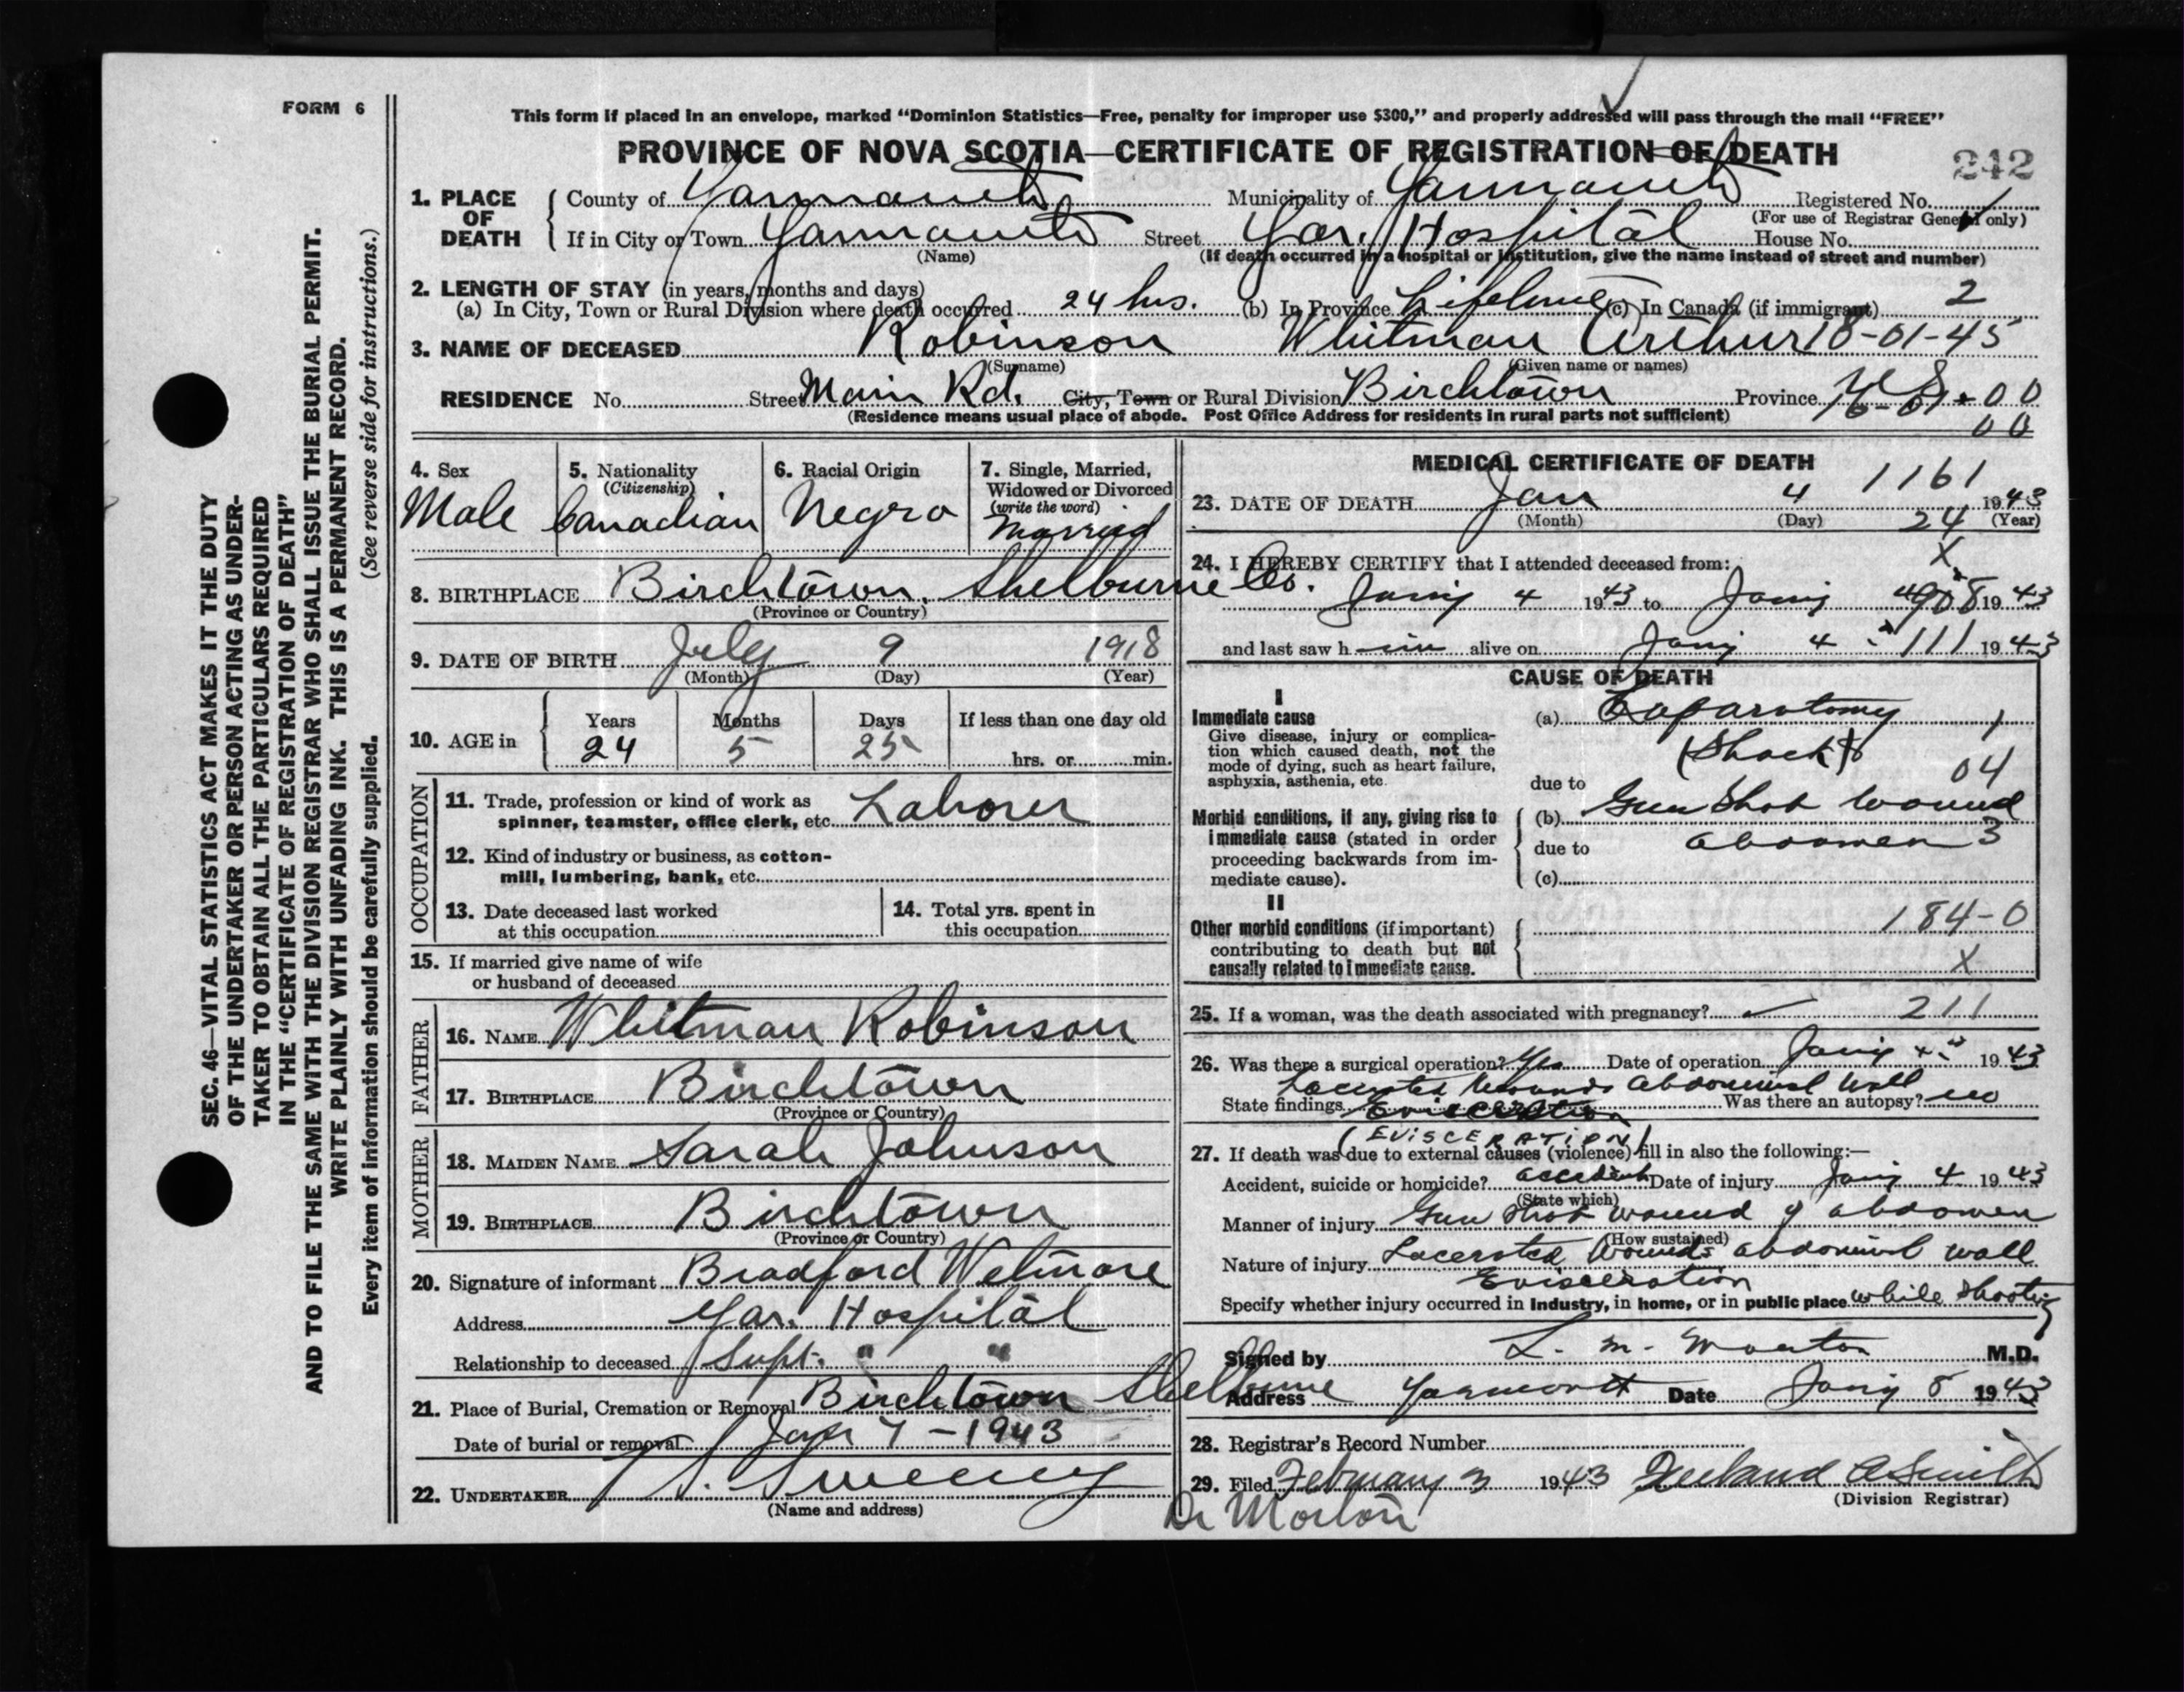 FORM 6
This form if placed in an envelope, marked “Dominion Statistics—Free, penalty for improper use $300,” and properly addressed will pass through the mail “FREE”
PROVINCE OF NOVA SCOTIA—CERTIFICATE OF REGISTRATION OF DEATH
242
1. PLACE OF DEATH
County of Yarmouth Municipality of Yarmouth Registered No.
(For use of Registrar General only)
If in City or Town Yarmouth Street Yar. Hospital House No.
(Name) (If death occurred in a hospital or institution, give the name instead of street and number)
2. LENGTH OF STAY (in years, months and days)
(a) In City, Town or Rural Division where death occurred 24 hrs. (b) In Province Lifetime (c) In Canada (if immigrant) 2
3. NAME OF DECEASED Robinson Whitman Arthur 18-01-45
(Surname) (Given name or names)
RESIDENCE No. Street Main Rd. City, Town or Rural Division Birchtown Province N.S.
(Residence means usual place of abode. Post Office Address for residents in rural parts not sufficient)
00
00
SEC. 46—VITAL STATISTICS ACT MAKES IT THE DUTY
OF THE UNDERTAKER OR PERSON ACTING AS UNDER-
TAKER TO OBTAIN ALL THE PARTICULARS REQUIRED
IN THE “CERTIFICATE OF REGISTRATION OF DEATH”
AND TO FILE THE SAME WITH THE DIVISION REGISTRAR WHO SHALL ISSUE THE BURIAL PERMIT.
WRITE PLAINLY WITH UNFADING INK. THIS IS A PERMANENT RECORD.
Every item of information should be carefully supplied. (See reverse side for instructions.)
4. Sex
Male
5. Nationality
(Citizenship)
Canadian
6. Racial Origin
Negro
7. Single, Married,
Widowed or Divorced
(write the word)
Married
8. BIRTHPLACE Birchtown, Shelburne Co.
(Province or Country)
9. DATE OF BIRTH July 9 1918
(Month) (Day) (Year)
10. AGE in
Years Months Days If less than one day old
24 5 25 hrs. or min.
OCCUPATION
11. Trade, profession or kind of work as
spinner, teamster, office clerk, etc. Laborer
12. Kind of industry or business, as cotton-
mill, lumbering, bank, etc.
13. Date deceased last worked
at this occupation
14. Total yrs. spent in
this occupation
15. If married give name of wife
or husband of deceased
FATHER
16. NAME Whitman Robinson
17. BIRTHPLACE Birchtown
(Province or Country)
MOTHER
18. MAIDEN NAME Sarah Johnson
19. BIRTHPLACE Birchtown
(Province or Country)
20. Signature of informant Bradford Wetmore
Address Yar. Hospital
Relationship to deceased Supt. " "
21. Place of Burial, Cremation or Removal Birchtown Shelburne
Date of burial or removal Jan 7 - 1943
22. UNDERTAKER Sweeney
(Name and address)
MEDICAL CERTIFICATE OF DEATH
1161
23. DATE OF DEATH Jan 4 1943
(Month) (Day) (Year)
24
24. I HEREBY CERTIFY that I attended deceased from:
X
Jany 4 1943 to Jany 4 1943
908
and last saw him alive on Jany 4 1943
111
CAUSE OF DEATH
I
Immediate cause
Give disease, injury or complica-
tion which caused death, not the
mode of dying, such as heart failure,
asphyxia, asthenia, etc.
(a) Laparotomy 1
(Shock)
due to 04
Morbid conditions, if any, giving rise to
immediate cause (stated in order
proceeding backwards from im-
mediate cause).
(b) Gun Shot wound
due to abdomen 3
(c)
II
Other morbid conditions (if important)
contributing to death but not
causally related to immediate cause.
184-0
X
25. If a woman, was the death associated with pregnancy? 211
26. Was there a surgical operation? Yes Date of operation Jany 4 1943
Lacerated Wounds Abdominal Wall
State findings Evisceration Was there an autopsy? no
(EVISCERATION)
27. If death was due to external causes (violence) fill in also the following:—
Accident, suicide or homicide? accident Date of injury Jany 4 1943
(State which)
Manner of injury Gun Shot wound of abdomen
(How sustained)
Nature of injury Lacerated Wounds abdominal wall
Evisceration
Specify whether injury occurred in industry, in home, or in public place while shooting
Signed by L. M. Morton M.D.
Address Yarmouth Date Jany 8 1943
28. Registrar’s Record Number
29. Filed February 3 1943 Smith
(Division Registrar)
Dr Morton